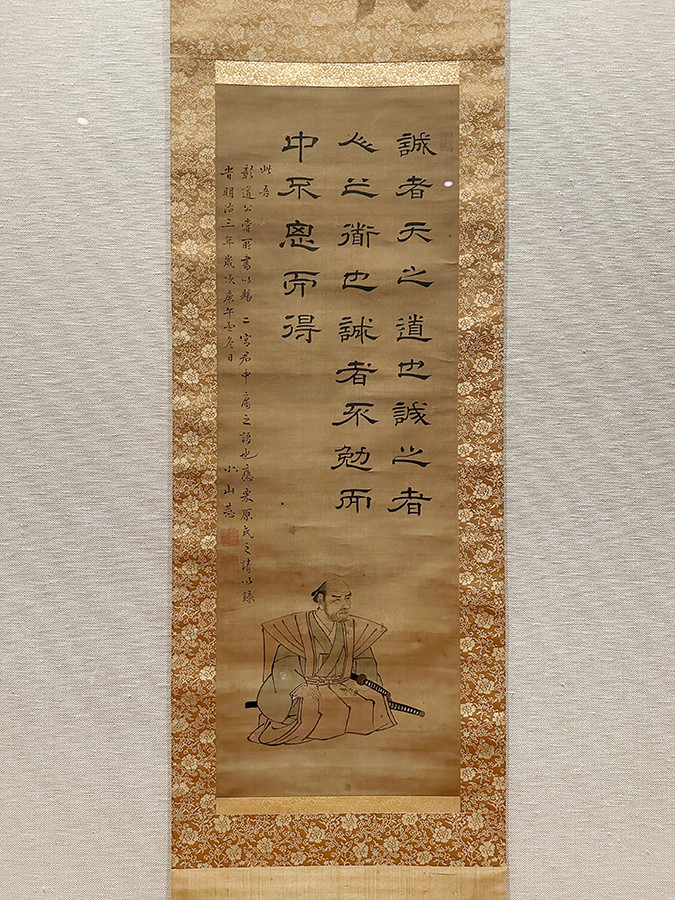 誠者天之道也誠之者
人之道也誠者不勉而
中不思而得
此吾
彰道公嘗所書以賜二宮君中庸之語也應栗原氏之請以錄
旹明治三年歲次庚午冬日
小山